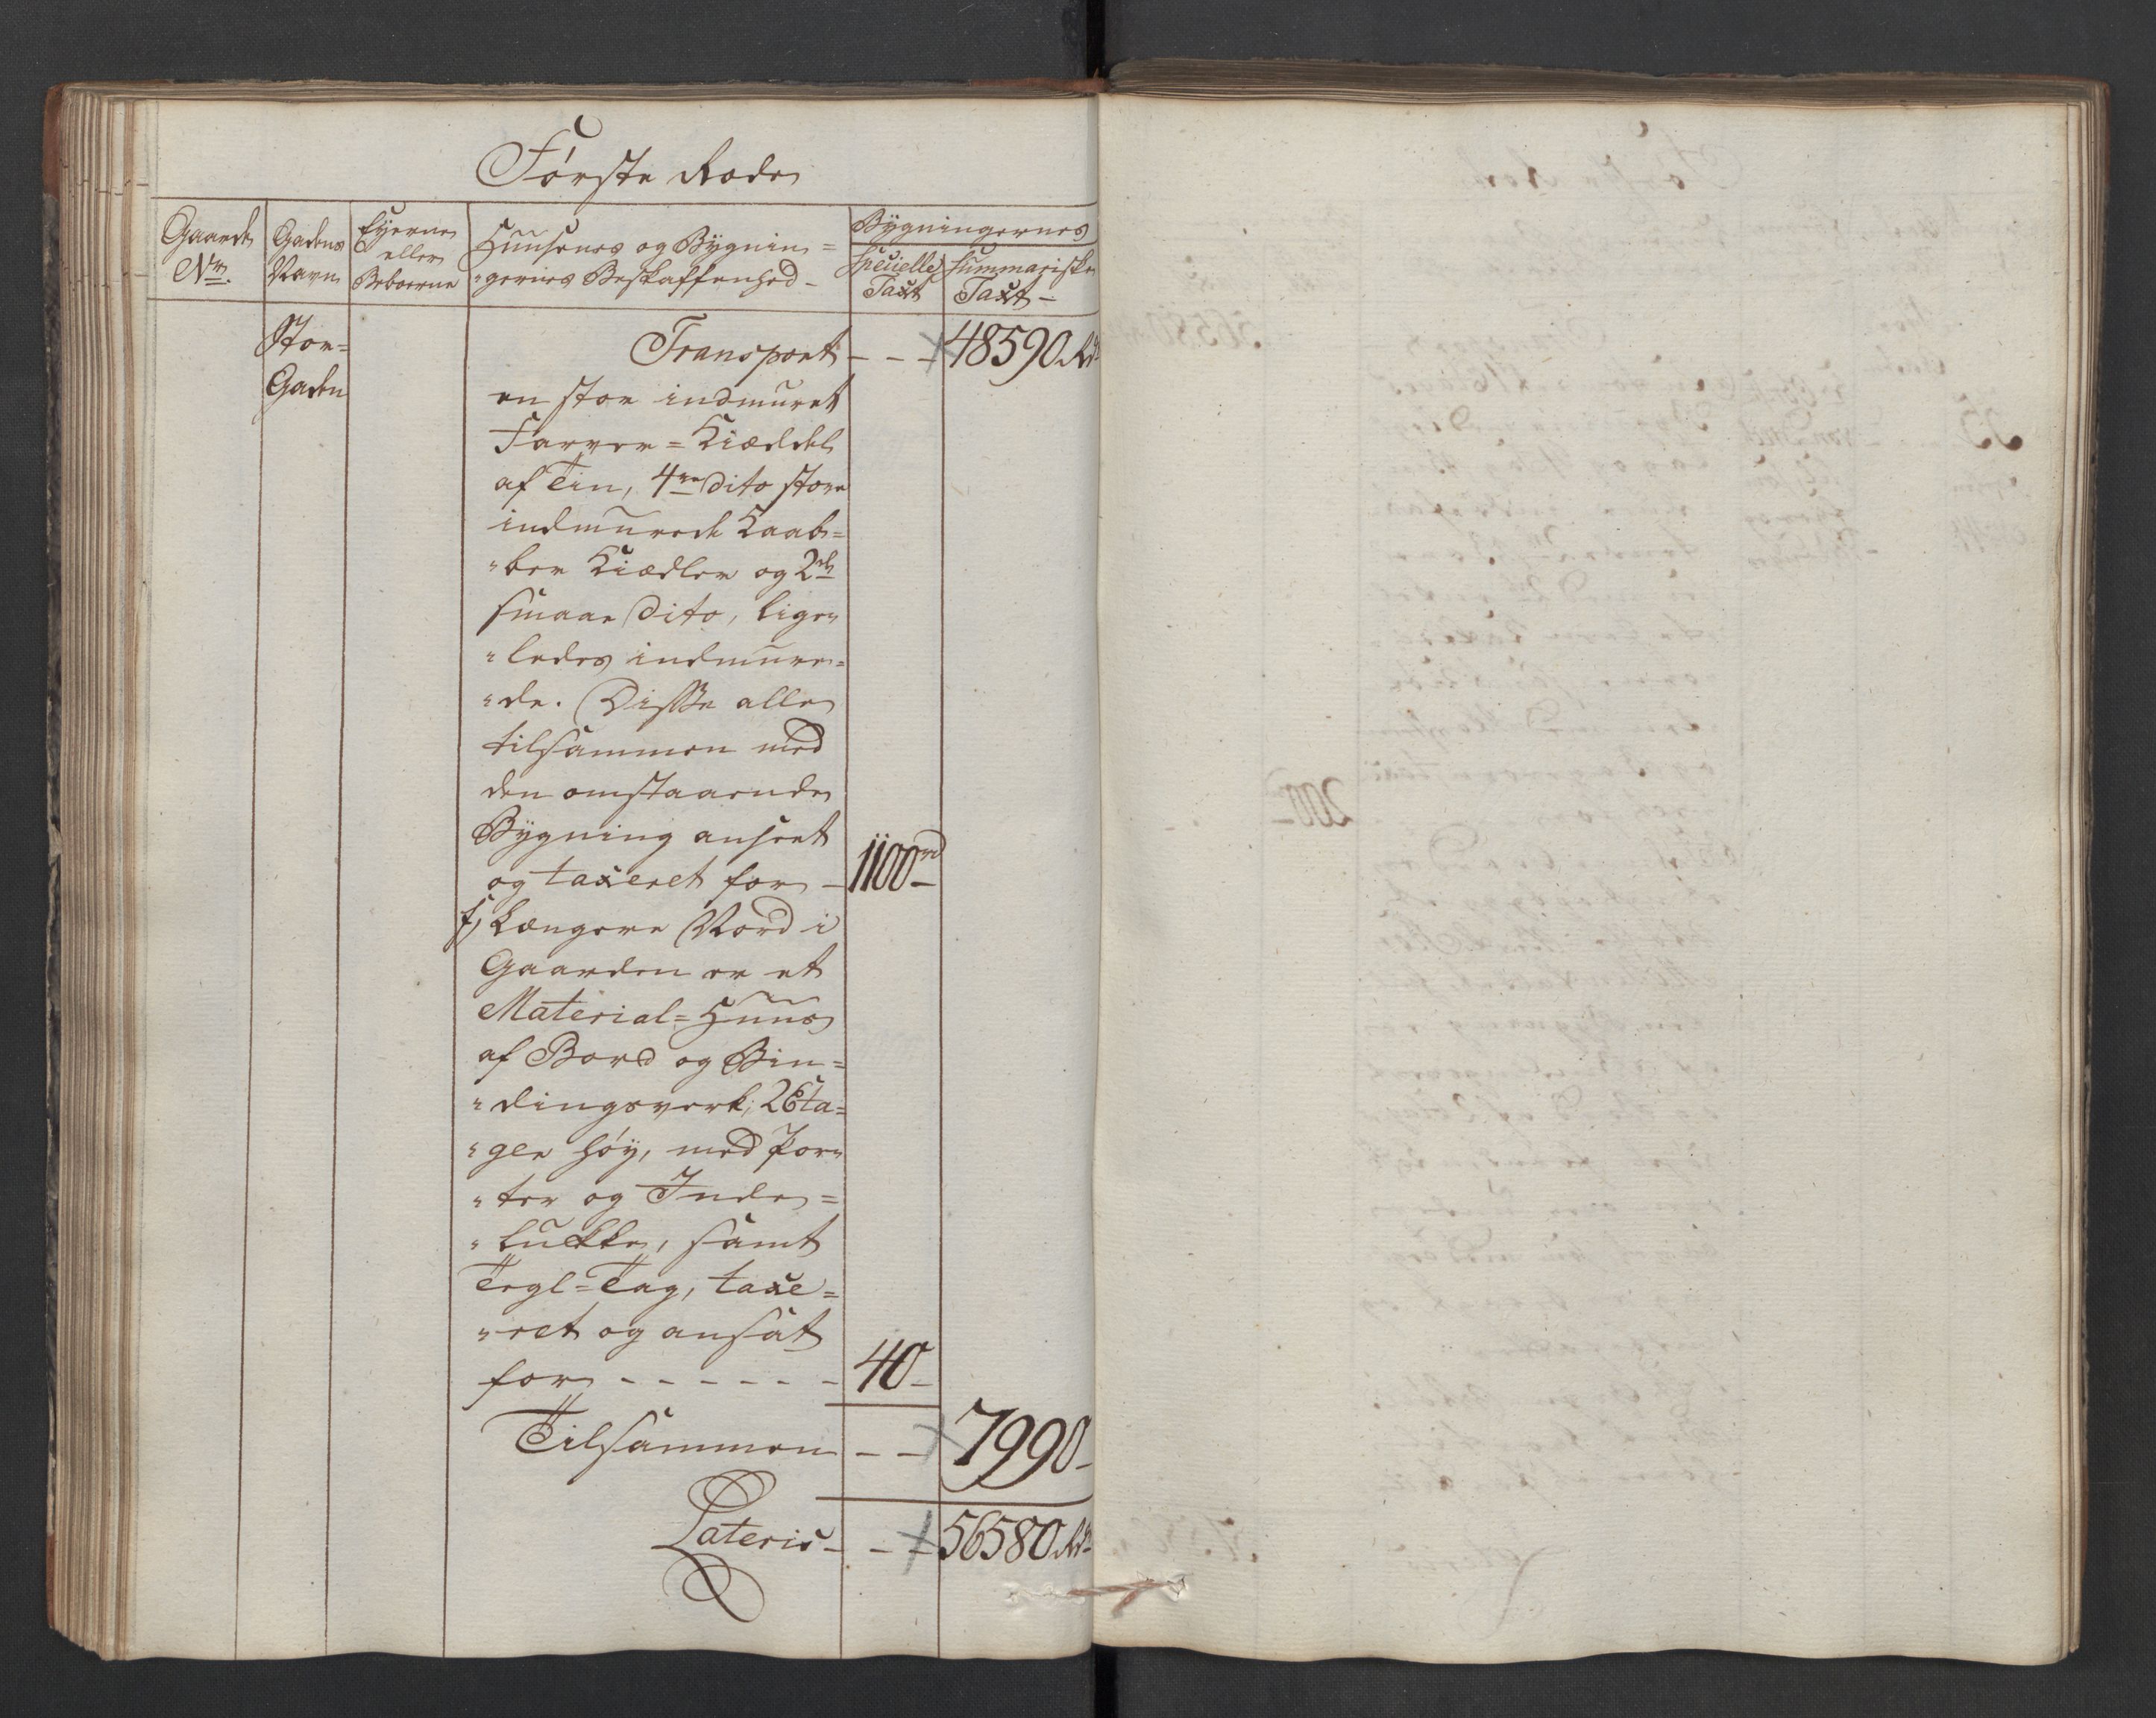 Første Rode
Gaarde Nr. | Gadens Navn | Eyerne eller Beboerne | Huusenes og Bygnin= "gernes Beskaffenhed - | Bygningernes Specielle Taxt | Summariske Taxt -
Stor= Gaden
Transport - - - 48590 Rd
en stor indmuret
Farver=Kiæddel
af Tin, 4re dito store
indmurede Kaab=
"ber Kiædler og 2de
smaae dito, lige
"ledes indmure=
"de. Disse alle
tilsammen med
den omstaaende
Bygning anseet
og taxeret for - 1100rd -
f) Længere Nord i
Gaarden er et
Material=Huus
af Bord og Bin=
"dingsverk, 2 Eta=
"ger høy, med Por
"ter og Inde=
"lukke, samt
Tegl=Tag, taxe=
"ret og ansat
for - - - - - - 40 -
Tilsammen - - 7990 -
Lateris - - - 56580 Rd